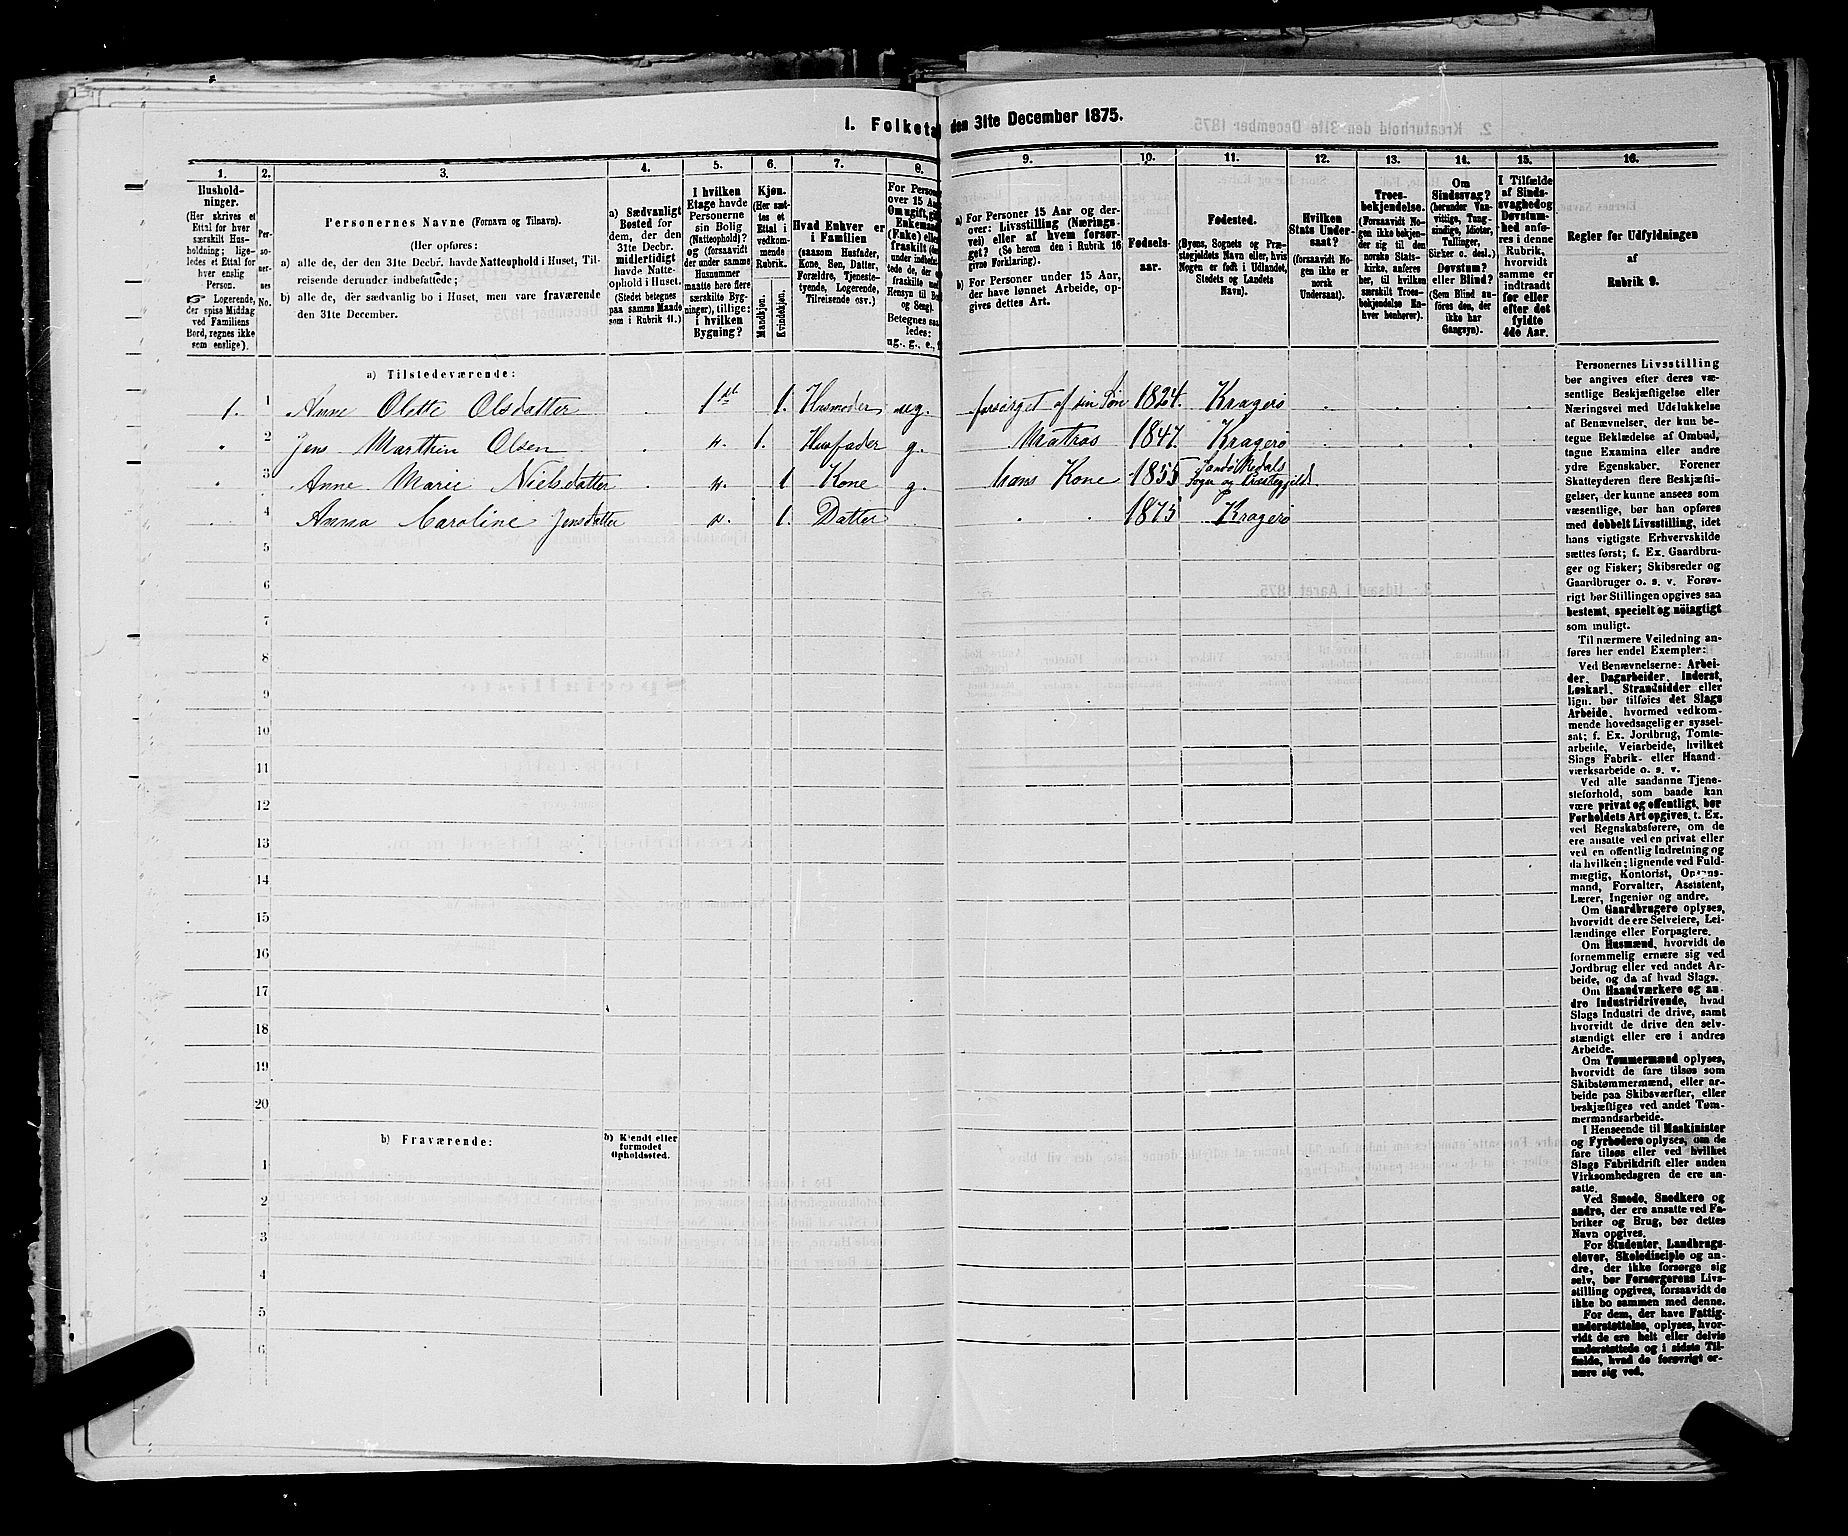 1. Folketa den 31te December 1875.
1. 2. 3. 4. 5. 6. 7. 8. 9. 10. 11. 12. 13. 14. 15. 16.
Husholdninger.
(Her skrives et
Ettal for hver
særskilt Husholdning;
ligeledes et Ettal for
hver enslig
Person.
Logerende,
der spise Middag
ved Familiens
Bord, regnes ikke
som enslige).
Personernes No.
Personernes Navne (Fornavn og Tilnavn).
(Her opføres:
a) alle de, der den 31te Decbr. havde Natteophold i Huset, Tilreisende derunder indbefattede;
b) alle de, der sædvanlig bo i Huset, men vare fraværende
den 31te December.
a) Sædvanligt
Bosted for
dem, der den
31te Decbr.
midlertidigt
havde Natteophold i Huset.
(Stedet betegnes
paa samme Maade
som i Rubrik 11.)
I hvilken
Etage havde
Personerne
sin Bolig
(Natteophold)?
og (forsaavidt
der under samme
Husnummer
maatte høre flere
særskilte Bygninger), tillige:
i hvilken
Bygning?
Kjøn.
(Her sættes et
Ettal i
vedkommende
Rubrik.
Mandkjøn.
Kvindekjøn.
Hvad Enhver er
i Familien
(saasom Husfader,
Kone, Søn, Datter,
Forældre, Tjenestetyende, Logerende,
Tilreisende osv.)
For Person
over 15 Aar
Om ugift, gi
Enkemand
(Enke) elle
fraskilt
ug., g., e.,
a) For Personer 15 Aar og derover: Livsstilling (Næringsvei) eller af hvem forsørget? (Se herom den i Rubrik 16
givne Forklaring).
b) For Personer under 15 Aar,
der have lønnet Arbeide, opgives dettes Art.
Fødselsaar.
Fødested.
(Byens, Sognets og Præstegjeldets Navn eller, hvis
Nogen er født i Udlandet,
Stedets og Landets
Navn).
Hvilken
Stats Undersaat?
(forsaavidt Nogen ikke er
norsk
Undersaat).
Troesbekjendelse.
(Forsaavidt Nogen ikke bekjender sig til den
norske Statskirke, anføres
her, til hvilken
særskilt Troesbekjendelse Enhver henhører).
Om
Sindssvag?
(herunder Vanvittige, Tungsindige, Idioter,
Tullinger,
Sirker o. desl.)
Døvstum?
eller Blind?
(Som Blind anføres den, der
ikke har
Gangsyn).
I Tilfælde
af Sindssvaghed og
Døvstumhed anføres i denne
Rubrik,
hvorvidt
samme er
indtraadt
før eller
efter det
fyldte
4de Aar.
Regler for Udfyldningen
af
Rubrik 9.
a) Tilstedeværende:
1. 1 Anne Olette Olsdatter 1st 1. Husmoder ug. forsørget af sin Søn 1824. Kragerø
2 Jens Marthin Olsen 1. Husfader g. Matros 1847. Kragerø
3 Anne Marie Nielsdatter 1 Kone g. hans Kone 1855
4 Anna Caroline Jensdatter 1. Datter 1875 Kragerø
5
6
7
8
9
10
11
12
13
14
15
16
17
18
19
20
b) Fraværende:
b) Kjendt eller
formodet
Opholdssted.
1
2
3
4
5
6
Personernes Livsstilling
bør angives efter deres væsentlige Beskjæftigelse eller
Næringsvei med Udelukkelse
af Benævnelser, der kun betegne Beklædelse af Ombud,
tagne Examina eller andre
ydre Egenskaber. Forener
Skatteyderen flere Beskjæftigelser, der kunne ansees som
væsentlige, bør han opføres
med dobbelt Livsstilling, idet
hans vigtigste Erhvervskilde
sættes først; f. Ex. Gaardbruger og Fisker; Skibsreder og
Gaardbruger o. s. v. Forøvrigt bør Stillingen opgives saa
bestemt, specielt og nöiagtigt
som muligt.
Til nærmere Veiledning anføres her endel Exempler:
Ved Benævnelserne: Arbeider, Dagarbeider, Inderst,
Løskarl, Strandsidder eller
lign. bør tilføies det Slags
Arbeide, hvormed vedkommende hovedsagelig er sysselsat; f. Ex. Jordbrug, Tomtearbeide, Veiarbeide, hvilket
Slags Fabrik- eller Haandværksarbeide o. s. v.
Ved alle saadanne Tjenesteforhold, som baade kan
være privat og offentligt, bør
Forholdets Art opgives, t. Ex.
ved Regnskabsførere, om de
ere ansatte ved en privat eller
ved en offentlig Indretning og
da hvilken; lignende ved Fuldmægtig, Kontorist, Opsynsmand, Forvalter, Assistent,
Lærer, Ingeniør og andre.
Om Gaardbrugere oplyses,
hvorvidt de ere Selveiere, Leilændinge eller Forpagtere.
Om Husmænd, hvorvidt de
fornemmelig ernære sig ved
Jordbrug eller ved andet Arbeide, og da af hvad Slags.
Om Haandværkere og andre Industridrivende, hvad
Slags Industri de drive, samt
hvorvidt de drive den selvstændigt eller ere i andres
Arbeide.
Om Tømmermænd oplyses,
hvorvidt de fare tilsøs som
Skibstømmermænd, eller arbeide paa Skibsværfter, eller
beskjæftiges ved andet Tømmermandsarbeide.
I Henseende til Maskinister
og Fyrbødere oplyses, om de
fare tilsøs eller ved hvilket
Slags Fabrikdrift eller anden
Virksomhedsgren de ere ansatte.
Ved Smede, Snedkere og
andre, der ere ansatte ved Fabriker og Brug, bør dettes
Navn opgives.
For Studenter, Landbrugselever, Skoledisciple og andre, der ikke forsørge sig
selv, bør Forsørgerens Livsstilling opgives, forsaavidt de
ikke bo sammen med denne.
For dem, der have Fattigunderstøttelse, oplyses, hvorvidt de ere helt eller delvis
understøttede og i sidste Tilfælde, hvad de forøvrigt ernære sig ved.